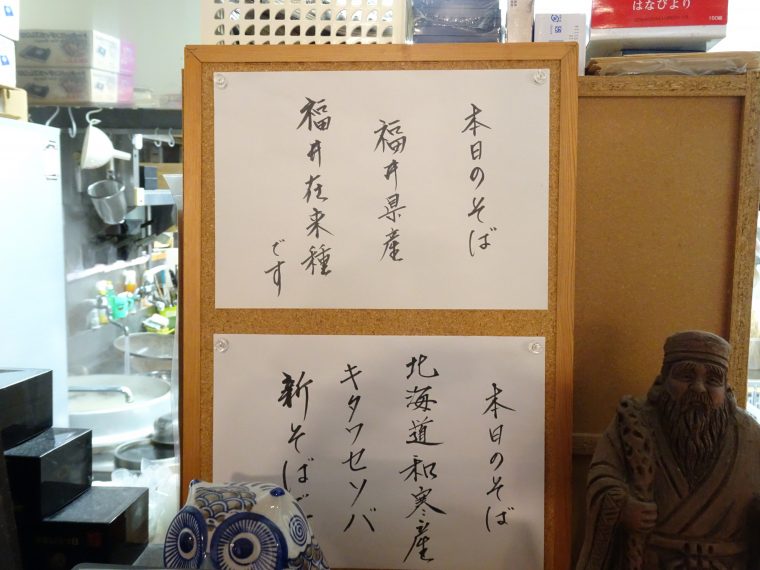 はなびより
本日のそば
福井県産
福井在来種
です
本日のそば
北海道和寒産
キタワセソバ
新そば